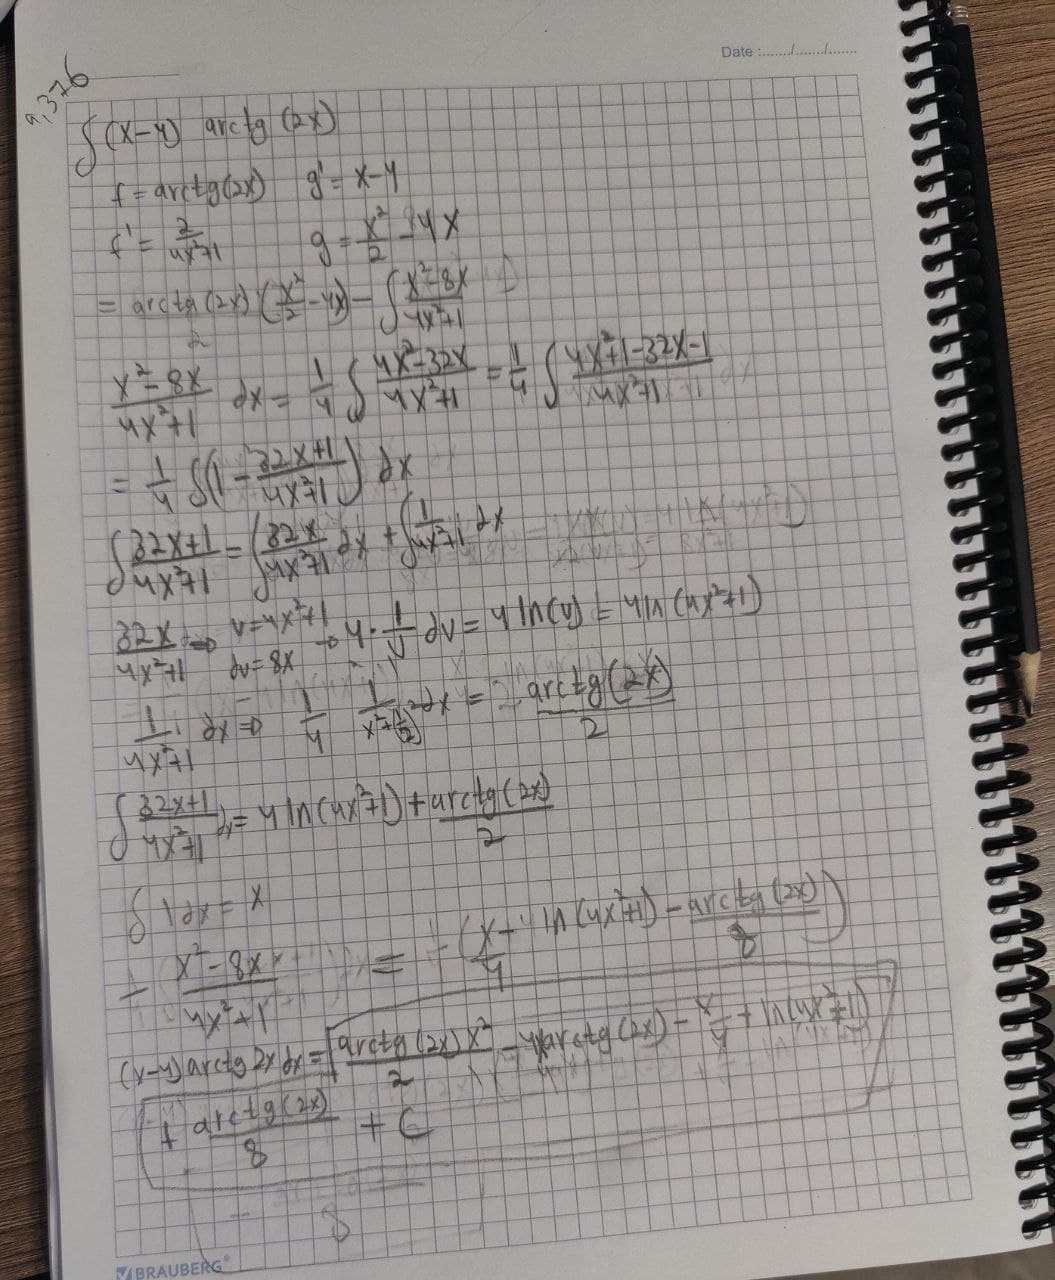 Date :....../....../......
9,376
∫(x-4) arctg (2x)
f = arctg(2x) g' = x-4
f' = 2/(4x²+1) g = x²/2 - 4x
= arctg(2x) (x²/2 - 4x) - ∫ (x²-8x)/(4x²+1)
(x²-8x)/(4x²+1) dx = 1/4 ∫ (4x²-32x)/(4x²+1) = 1/4 ∫ (4x²+1-32x-1)/(4x²+1)
= 1/4 ∫(1 - (32x+1)/(4x²+1)) dx
∫ (32x+1)/(4x²+1) = ∫ 32x/(4x²+1) dx + ∫ 1/(4x²+1) dx
32x/(4x²+1) ⇒ v=4x²+1 dv=8x → 4 · 1/v dv = 4 ln(v) = 4 ln(4x²+1)
1/(4x²+1) dx ⇒ 1/4 1/(x²+(1/2)²) dx = arctg(2x)/2
∫ (32x+1)/(4x²+1) dx = 4 ln(4x²+1) + arctg(2x)/2
∫ 1 dx = x
- (x²-8x)/(4x²+1) = -(x/4 - ln(4x²+1) - arctg(2x)/8)
(x-4) arctg 2x dx = arctg(2x) x²/2 - 4x arctg(2x) - x/4 + ln(4x²+1)
+ arctg(2x)/8 + C
8
BRAUBERG®